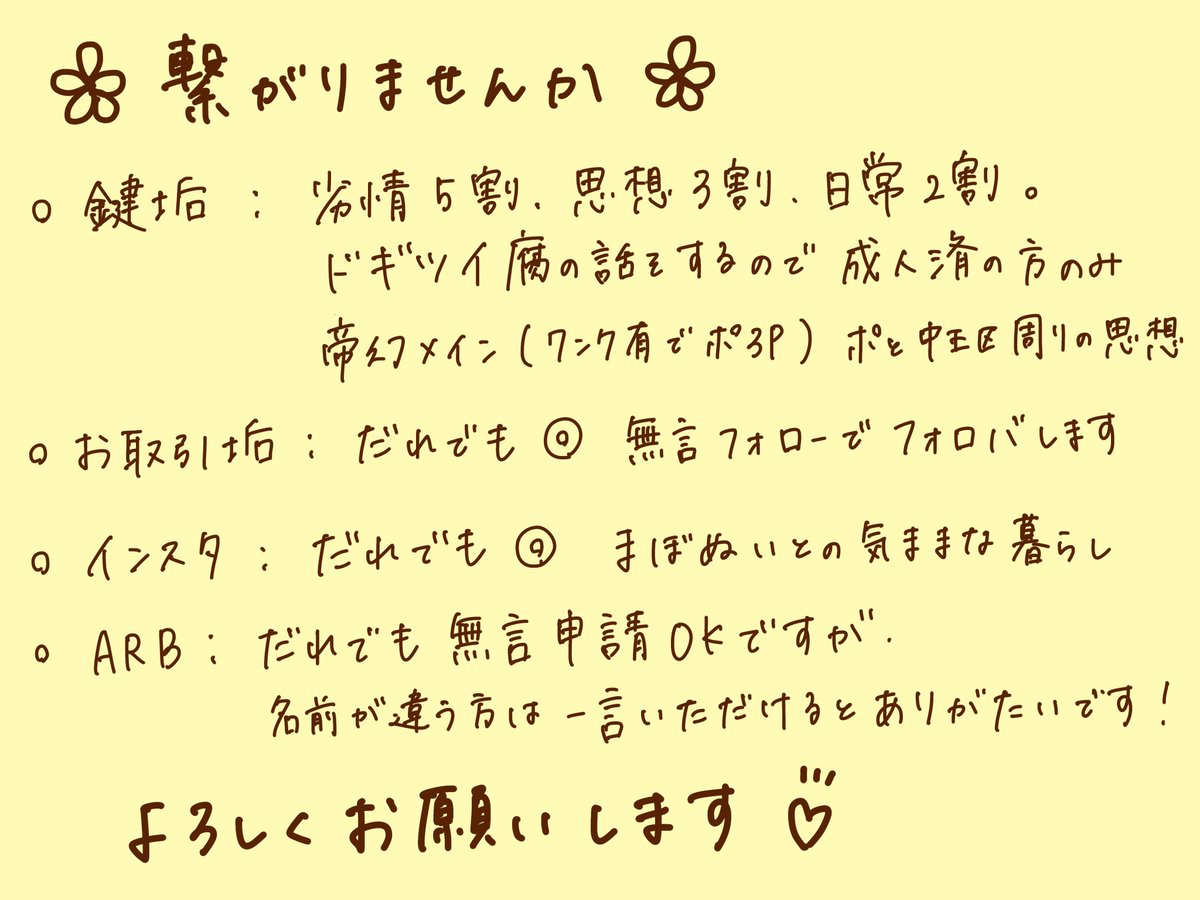 繋がりませんか
○ 鍵垢 : 劣情5割、思想3割、日常2割。
ドギツイ腐の話をするので成人済の方のみ
帝幻メイン(ワンク有でポ3P) ポと中王区周りの思想
○ お取引垢 : だれでも◎ 無言フォローでフォロバします
○ インスタ : だれでも◎ まぼぬいとの気ままな暮らし
○ ARB : だれでも無言申請OKですが、
名前が違う方は一言いただけるとありがたいです!
よろしくお願いします♡